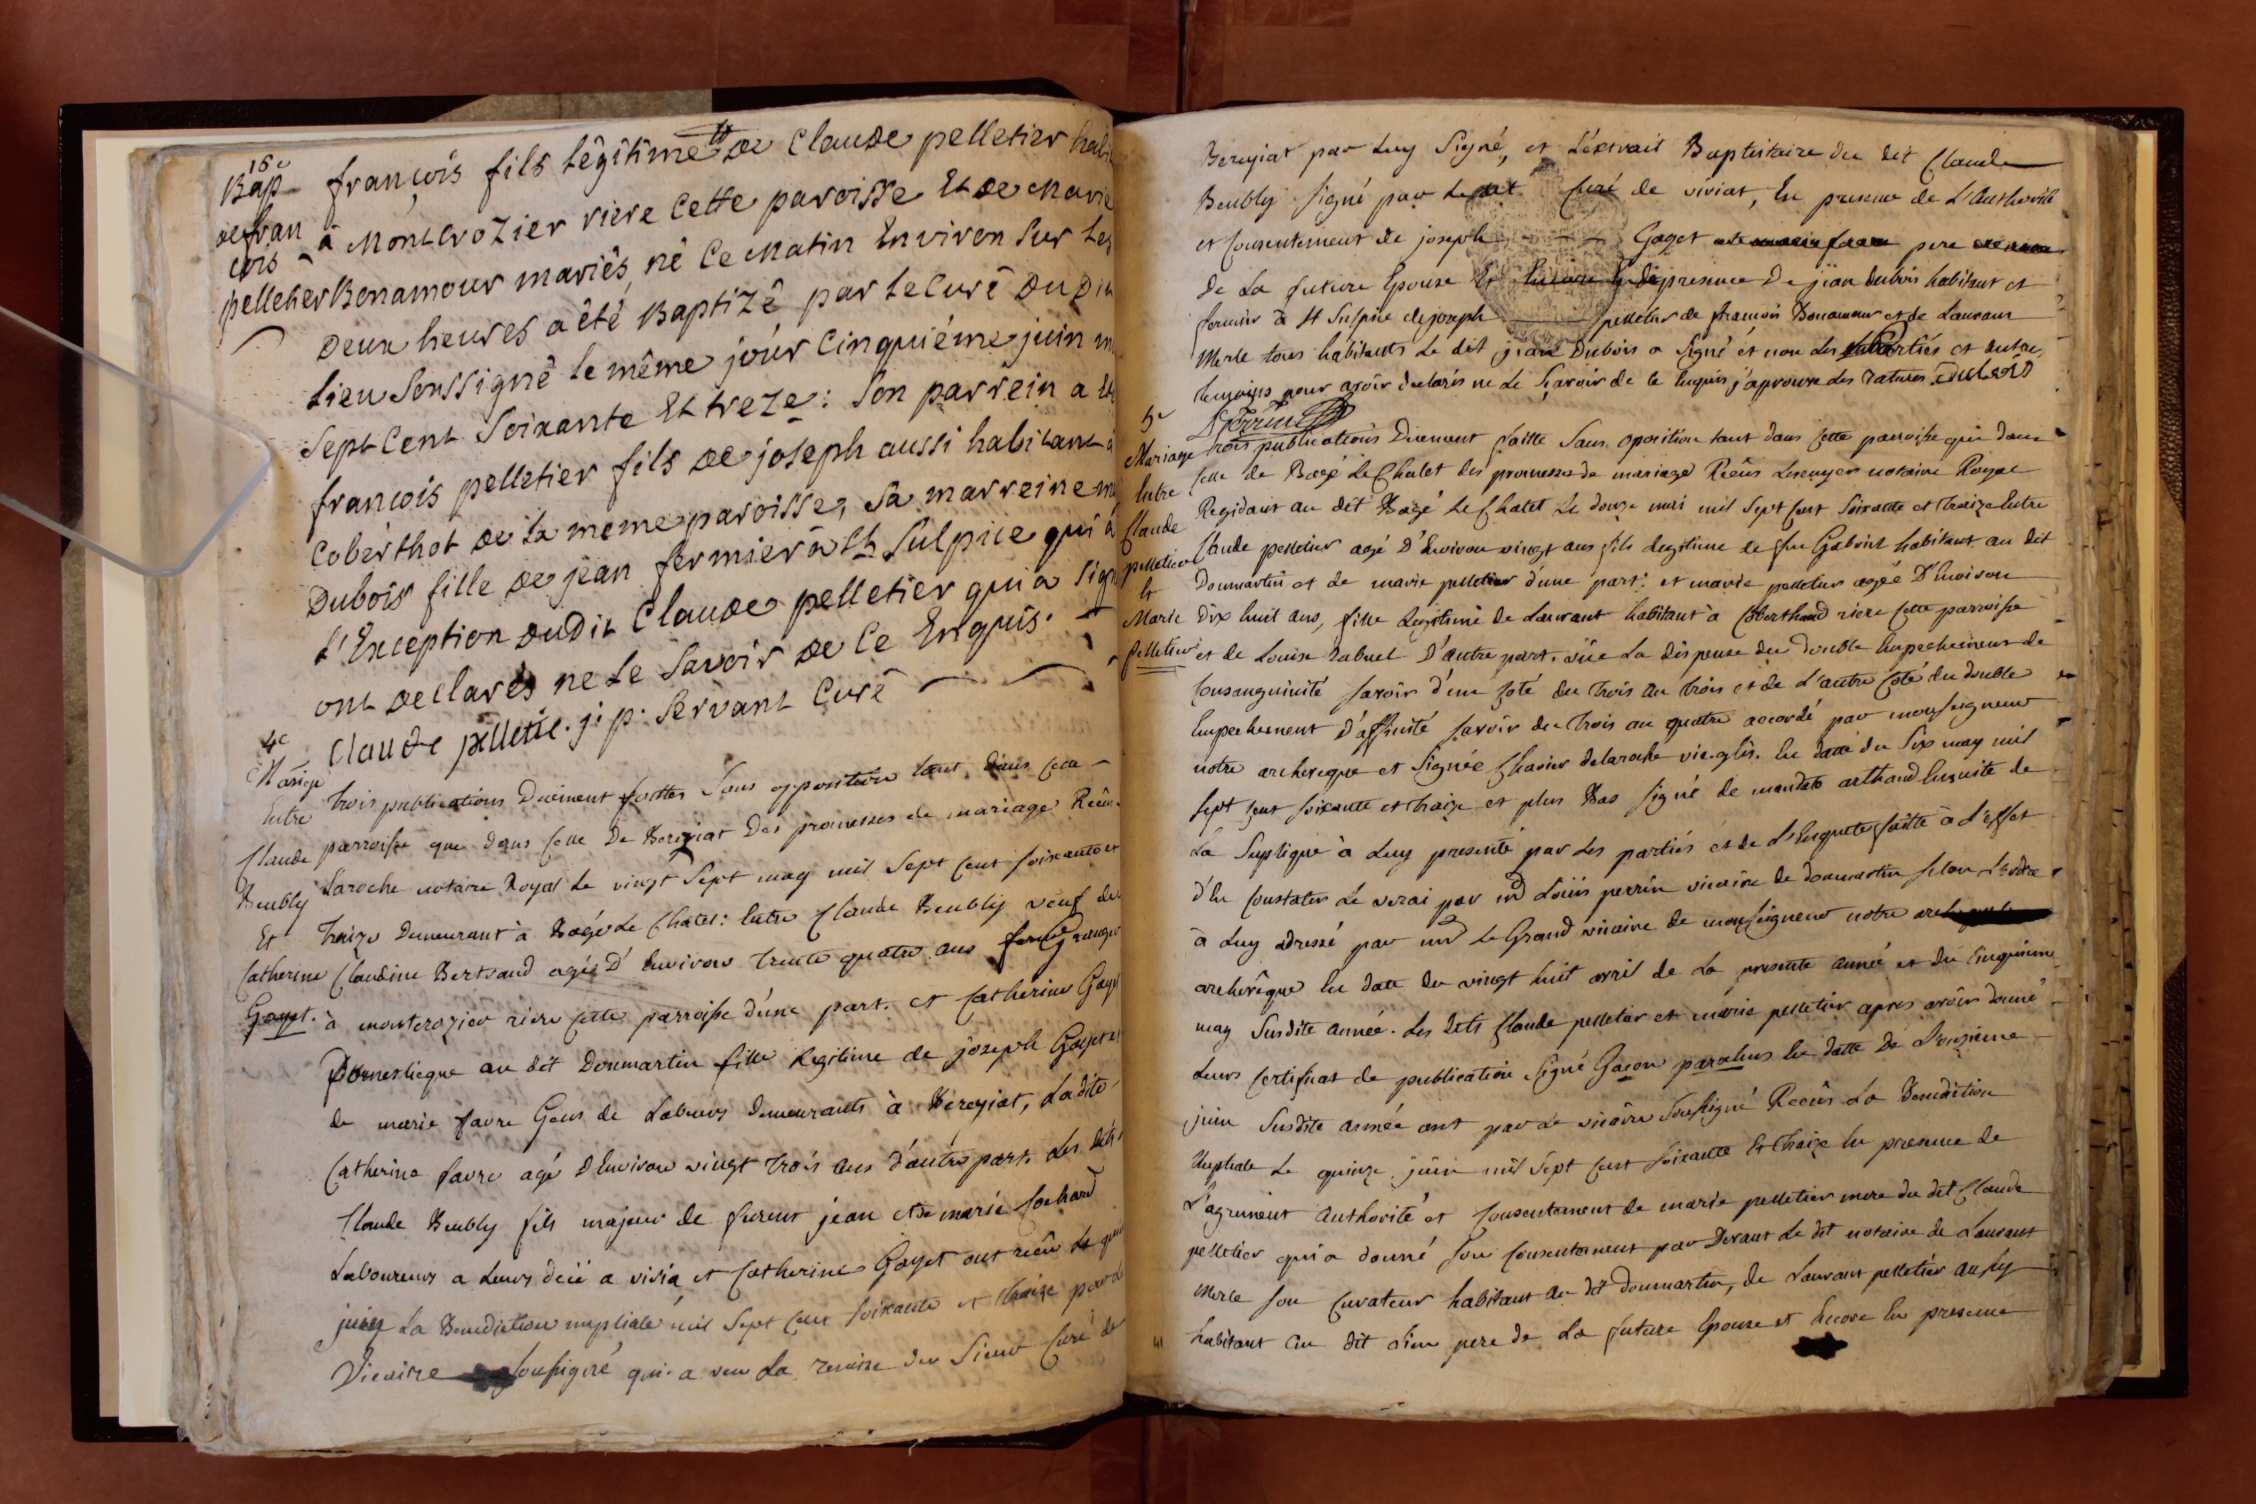 15e
Bap
de fran
çois
pelletier
françois fils légitime de Claude pelletier habi
à Montcrozier riere Cette paroisse Et de Marie
Bonamour mariés, né Ce Matin Environ sur les
Deux heures a été Baptizé par le Curé Du Dit
Lieu soussigné le même jour Cinquiéme juin m
Sept Cent Soixante Et treze : son parrein a
françois pelletier fils de joseph aussi habitant à
Coberthot de la meme paroisse, Sa marreine
Dubois fille de jean fermier à St Sulpice qui
l'Exception dudit Claude pelletier qui a sign
ont declarés ne le savoir de Ce Enquis.
Claude pelletie. j: p: servant Curé
4e
Mariage
Entre
Claude
Beubly
Et
Catherine
Gayet.
trois publications Duëment faittes sans opposition tant dans cette
parroisse que dans celle De Bereyiat Des promesses de mariage Recûs
Laroche notaire Royal le vingt Sept may mil Sept Cent soixante et
traize Demeurant à Bagé le Chatel : Entre Claude Beubly veuf de
Claudine Bertrand agé D'Environ trente quatre ans granger
à montcrozier riere cette parroisse d'une part. et Catherine Gayet
Domesticque au dit Donmartin fille legitime de joseph Gayet et
de marie favre Gens de Labeurs demeurants à Bereyiat, Ladite
Catherine favre agé D'Environ vingt trois ans d'autre part. Les dits
Claude Beubly fils majeur de furent jean et de marie Cochard
Laboureurs a leurs deié a viria et Catherine Gayet ont recûs le
juin La Benediction nuptiale mil Sept Cent Soixante et traize par le
Vicaire soussigné qui a veu La remise du Sieur Curé de
Bereyiat par Luy Signé, et L'extrait Baptistaire du dit Claude
Beubly signé par le dit Curé de viriat, En presence de L'Authorité
et Consentement de joseph Gayet pere
de La future Epouse Et presence De jean dubois habitant et
fermier à St Sulpice de joseph pelletier de françois Bonamour et de Laurant
Merle tous habitants Le dit jean Dubois a Signé et non Les parties et autres
temoins pour avoir declarés ne Le Sçavoir de ce Enquis j'approuve Les ratures Dubois
Perrin
5e
Mariage
Entre
Claude
pelletier
Et
Marie
pelletier
trois publications Duement faitte Sans oposition tant dans cette parroisse que dans
celle de Bagé Le Chatel des promesses de mariage Recûs Lescuyer notaire Royal
Residant au dit Bagé Le Chatel Le douze mai mil Sept Cent Soixante et traize Entre
Claude pelletier agé D'Environ vingt ans fils legitime de feu Gabriel habitant au dit
Donmartin et de marie pelletier d'une part. et marie pelletier agée D'Environ
Dix huit ans, fille Legitime de Laurant habitant à Coberthoud riere Cette parroisse
et de Louise Sabuel D'autre part. vûe La dispense du double Empechement de
Consanguinité savoir d'une Coté du trois au trois et de L'autre Coté du double
Empechement D'affinité savoir du trois au quatre accordé par monseigneur
notre archeveque et Signée Chavier delaroche vic. glis. En datte du Six may mil
Sept Cent soixante et traize et plus Bas Signé de mandato arthaud Ensuite de
La Suplique à Luy presenté par Les parties et de L'Enquete faitte à L'effet
d'En Constater Le verai par md Loüis perrin vicaire de donmartin selon L'ordre
à Luy adressé par md Le Grand vicaire de monseigneur notre
archevêque En date du vingt huit avril de La presente année et du Cinquieme
may Susdite année. Les dits Claude pelletier et marie pelletier apres avoir donné
Leurs Certificat de publication Signé Gacon parochus En datte De L'onzieme
juin Susdite année ont par Le vicaire Sousigné Recûs La Benediction
Nuptiale Le quinze juin mil Sept Cent soixante Et traize En presence de
L'agrement Authorité et Consentement de marie pelletier mere du dit Claude
pelletier qui a donné son Consentement par Devant Le dit notaire de Laurant
Merle son Curateur habitant au dit Donmartin, de Laurant pelletier aussy
habitant au dit Lieu pere de La future Epouse et Encore En presence